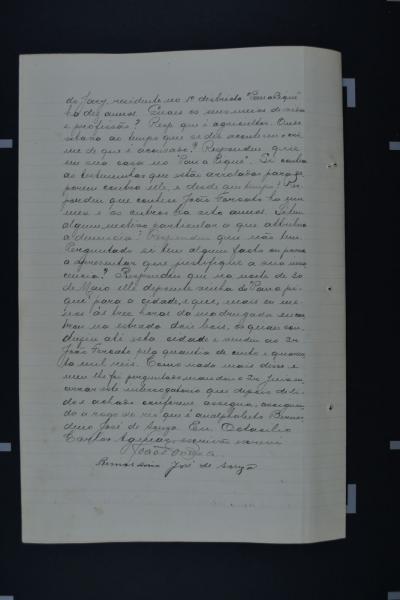 do Jacy, residente no 1º destricto "Passa Pequê"
ha dez annos. Quais os seus meios de vida
e profissão? Resp. que é agricultor. Onde
estava ao tempo que se diz aconteceu o cri-
me de que é accusado? Respondeu que
em sua casa no "Passa Piquê". Se conhe
as testemunhas que estão arroladas para de-
porem contra elle, e desde que tempo? Res-
pondeu que conhece João Forcato ha um
mez e as outras ha oito annos. Se tem
algum motivo particular a que attribua
a denuncia? Respondeu que não tem.
Perguntado se tem algum facto ou prova
a apresentar que justifique a sua inno-
cencia? Respondeu que na noite de 30
de Maio elle depoente vinha do "Passa pi-
quê" para a cidade, e que, mais ou me-
nos ás tres horas da madrugada encon-
trou na estrada dois bois, os quaes con-
duziu até esta cidade e vendeu ao Sr.
João Forcato pela quantia de cento e quaren-
ta mil reis. Como nada mais disse e
nem lhe foi perguntado mandou o Dr. Juiz en-
cerrar este interrogatorio que depois de li-
do e achado conforme assigna, assignan-
do a rogo do réo que é analphabeto Bernar-
dino José de Souza. Eu, Octacilio
Carlos escrivão escrevi
Bernardino José de Souza